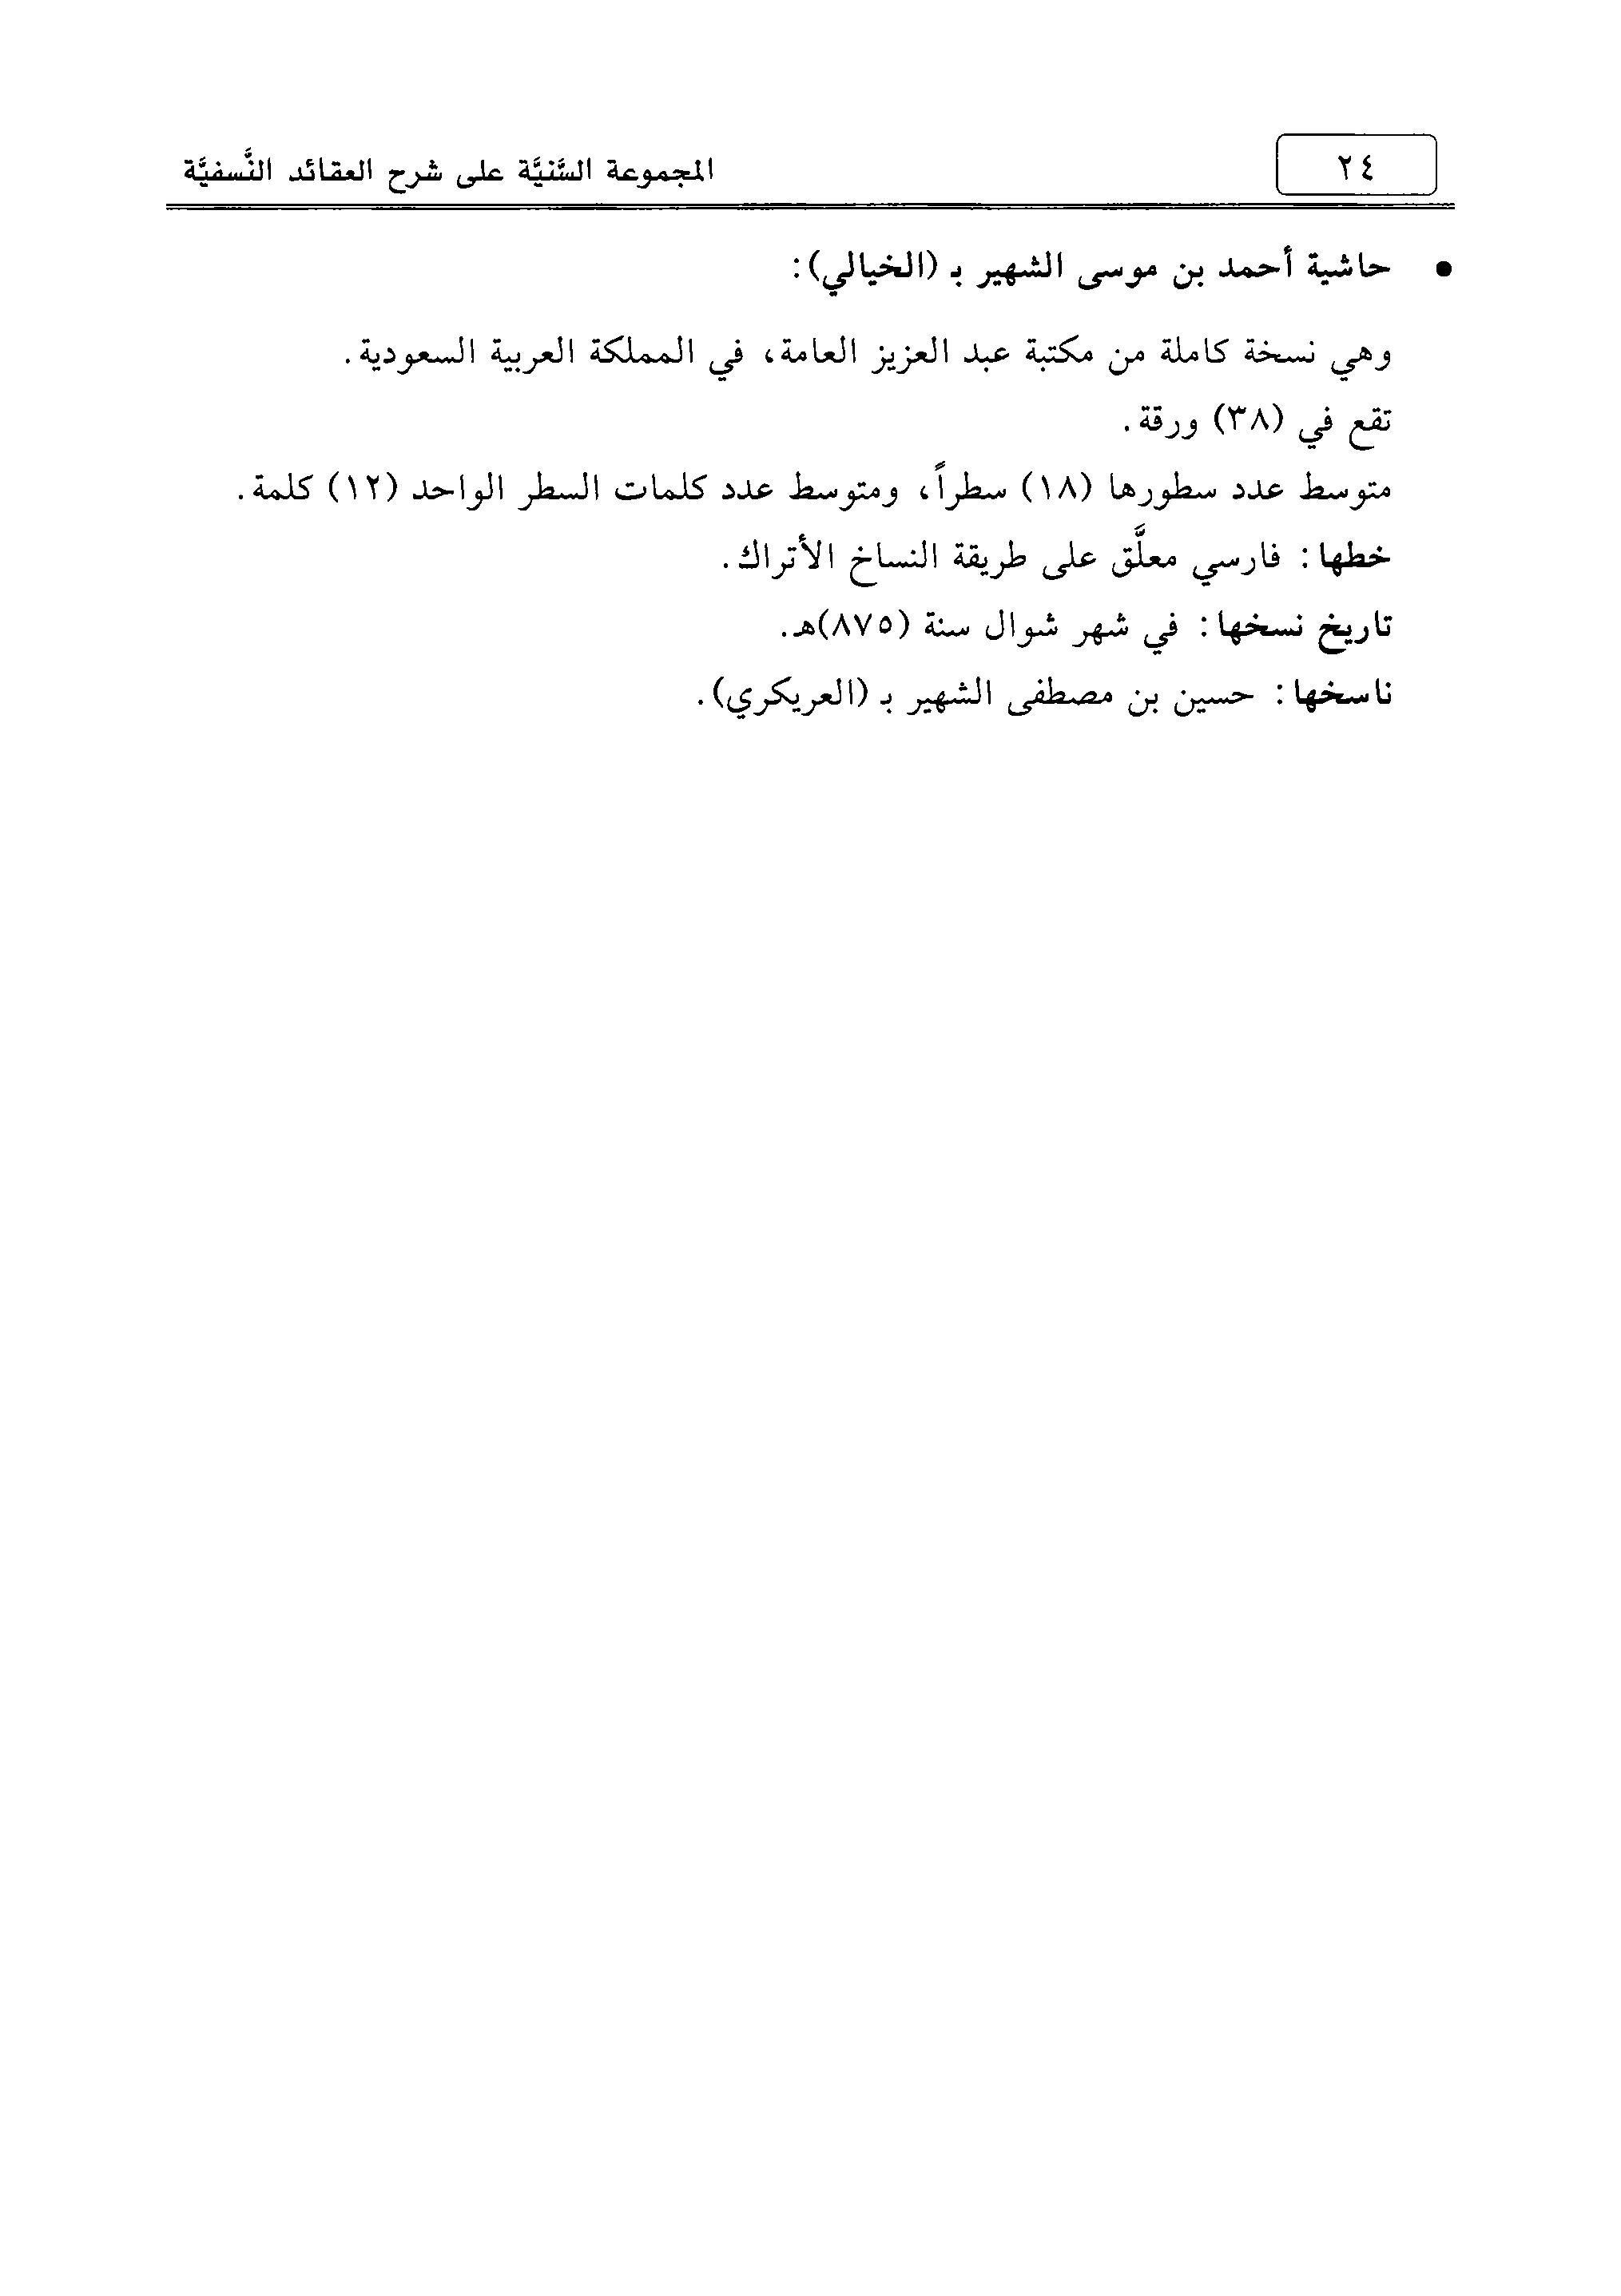 ٢٤
المجموعة السَّنيَّة على شرح العقائد النَّسفيَّة
• حاشية أحمد بن موسى الشهير بـ (الخيالي):
وهي نسخة كاملة من مكتبة عبد العزيز العامة، في المملكة العربية السعودية.
تقع في (٣٨) ورقة.
متوسط عدد سطورها (١٨) سطراً، ومتوسط عدد كلمات السطر الواحد (١٢) كلمة.
خطها: فارسي معلَّق على طريقة النساخ الأتراك.
تاريخ نسخها: في شهر شوال سنة (٨٧٥)هـ.
ناسخها: حسين بن مصطفى الشهير بـ (العريكري).